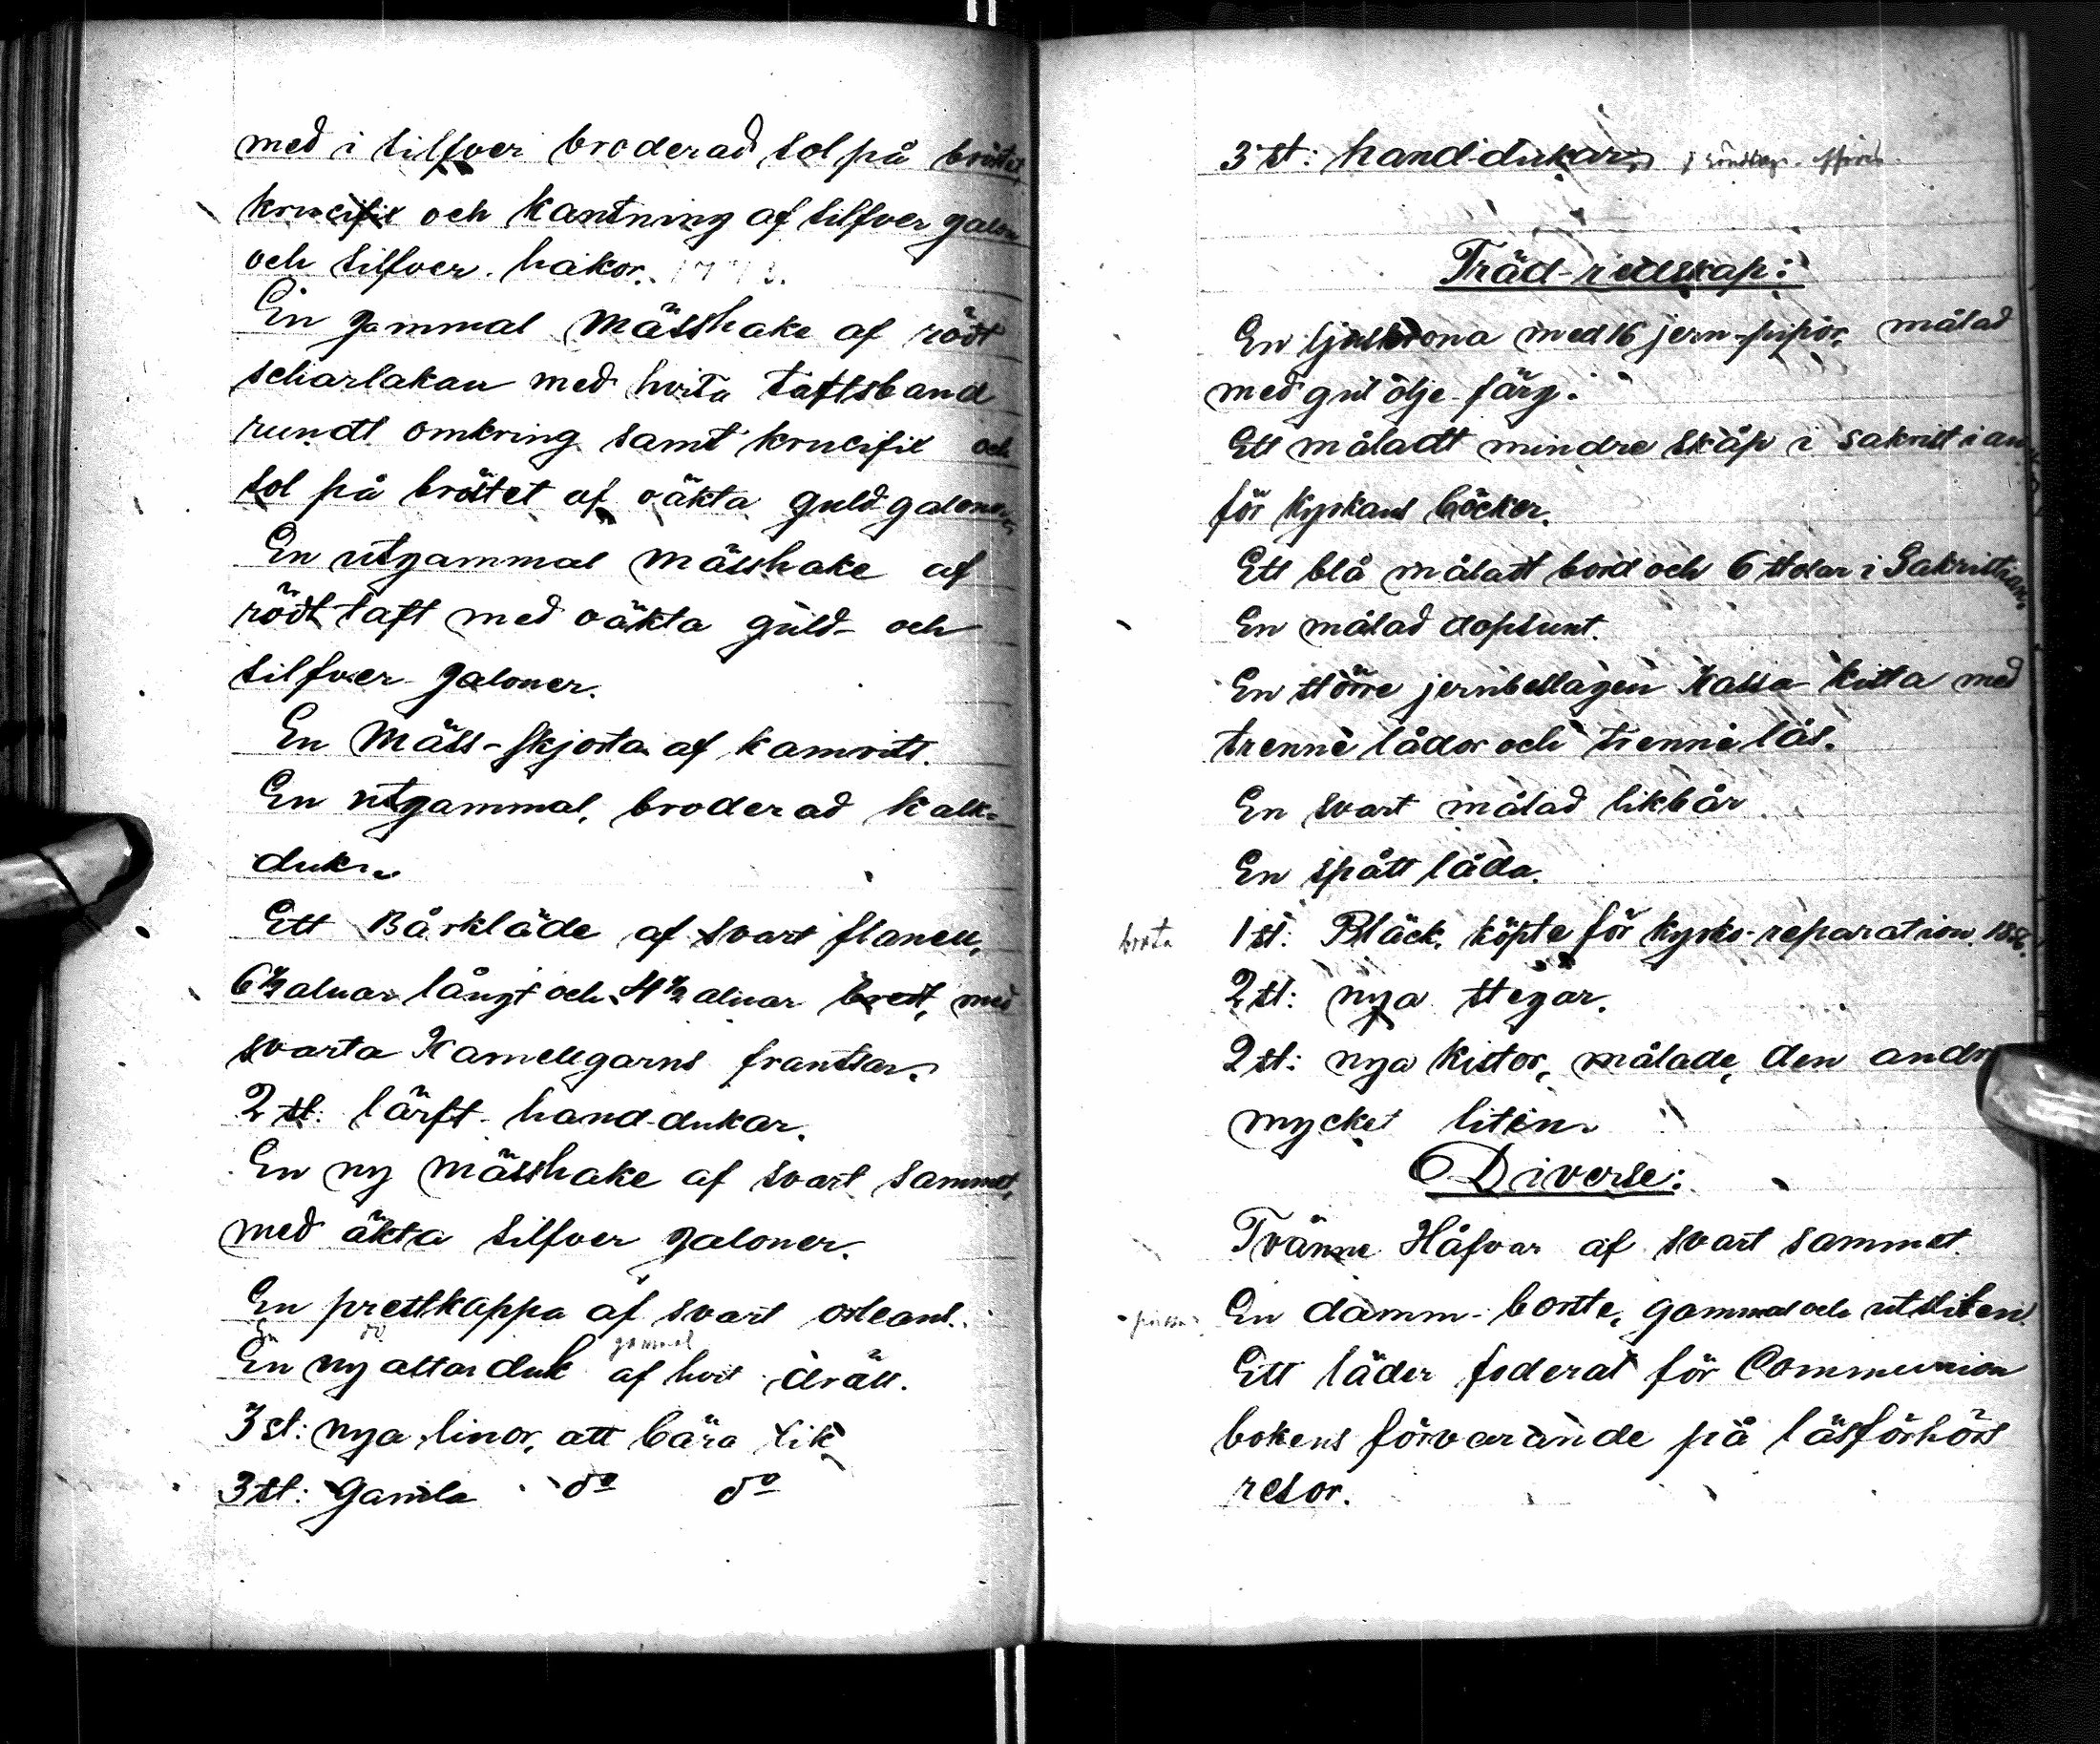 med i silfver broderad sol på bröstet,
krucifix och kantning af silfver galon
och silfver hakor.
En gammal Mässhake af rödt
scharlakan med hvita taftsband
rundt omkring samt krucifix och
sol på bröstet af oäkta guldgaloner.
En utgammal Mässhake af
rödt taft med oäkta guld- och
silfver galoner.
En Mäss-skjorta af kamritt.
En utgammal, broderad kalk-
duk.
Ett Bårkläde af svart flanell,
6½ alnar långt och 4½ alnar bredt, med
svarta Kamelgarns frantsar.
2 st: lärft-hand-dukar.
En ny mässhake af svart sammet,
med äkta silfver galoner.
En prestkappa af svart orleans.
En do gammal
En ny altarduk af hvit dräll.
3 st: nya linor, att bära lik
3 st: Gamla do do
3 st: hand-dukar
Träd-redskap:
En ljuskrona med 16 jern-pipor, målad
med gul olje-färg.
Ett måladt mindre skåp i sakristian
för kyrkans böcker.
Ett blå måladt bord och 6 stolar i Sakristian.
En målad dopfunt.
En större jernbeslagen Kassa-kista med
trenne lådor och trenne lås.
En svart målad likbår.
En spått låda.
borta 1 st: Bläck, köpte för kyrko-reparation.
2 st: nya stegar.
2 st: nya kistor, målade, den andra
mycket liten.
Diverse:
Tvänne Håfvar af svart sammet.
En damm-borste, gammal och utsliten.
Ett läder foderal för Communion
bokens förvarande på läsförhörs
resor.